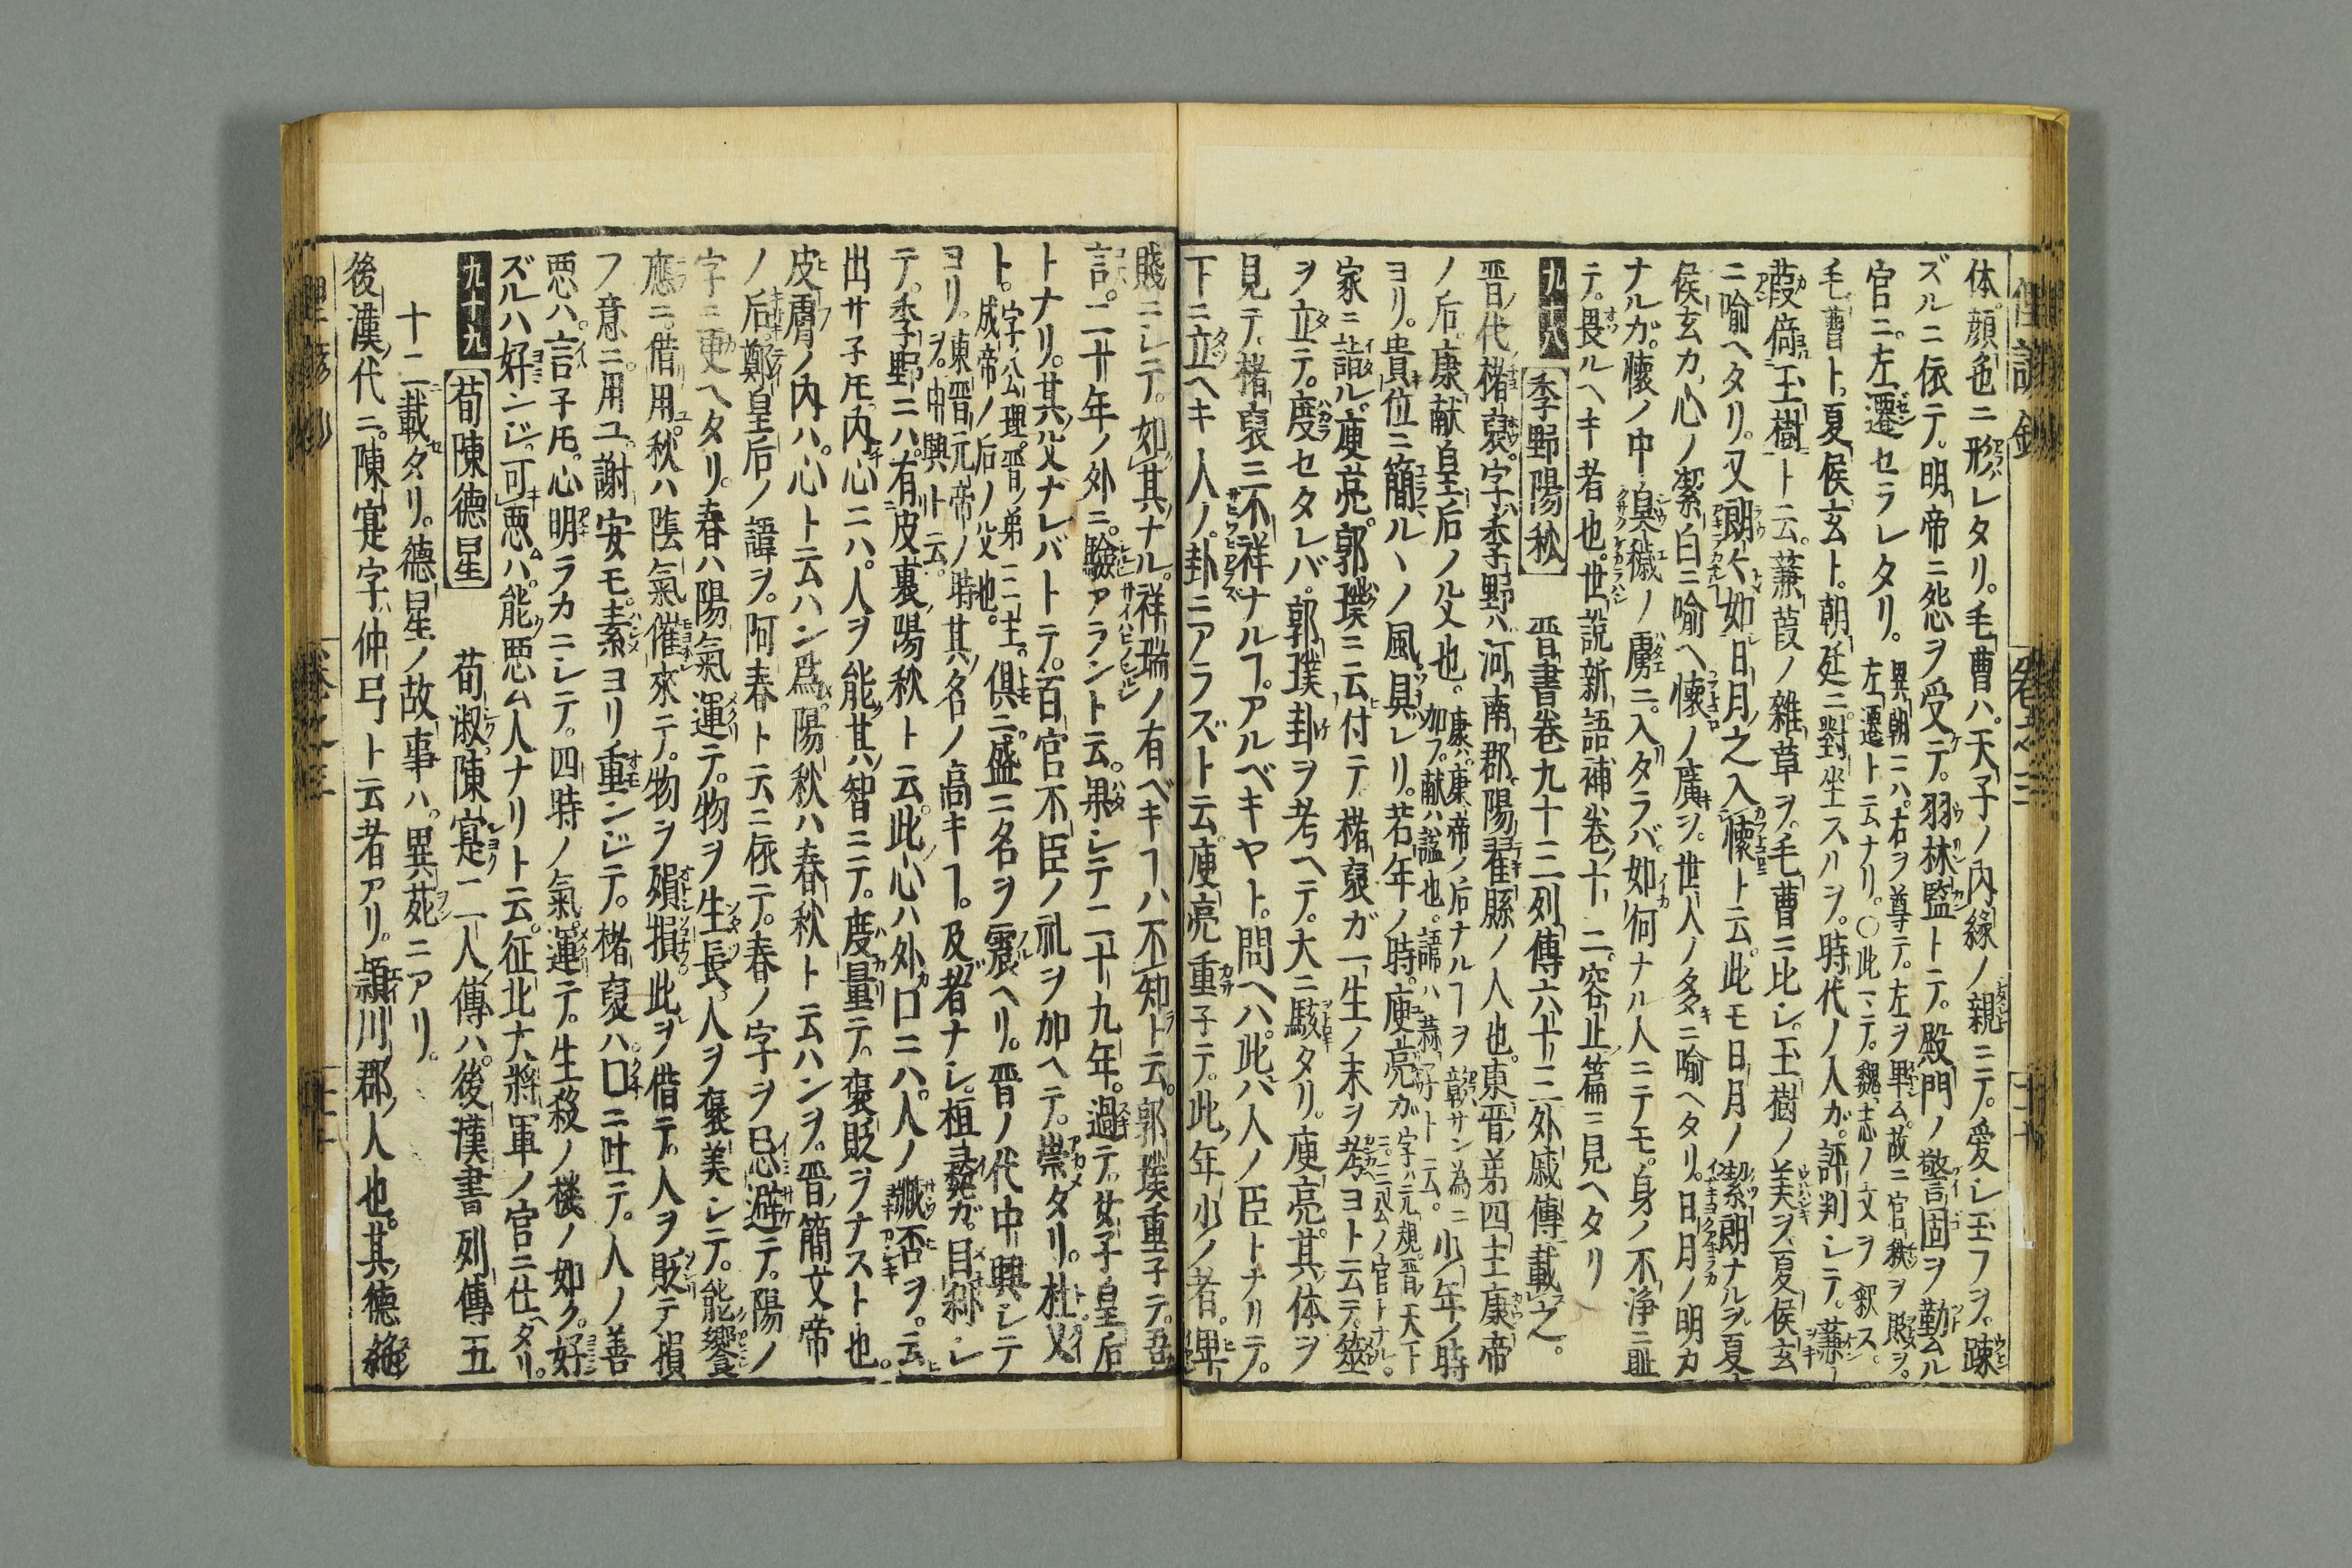 体顔色ニ形レタリ。毛曹ハ。天子ノ内縁ノ親ニテ。愛シ玉フヲ。踈
ズルニ依テ。明帝ニ怨ヲ受テ。羽林監トテ。殿門ノ警固ヲ勤ムル
官ニ。左遷セラレタリ。異朝ニハ。右ヲ尊テ。左ヲ卑ム。故ニ官秩ヲ貶ヲ。左遷ト云ナリ。〇此ニテ。魏志ノ文ヲ釈ス。
毛曹ト。夏侯玄ト。朝廷ニ對坐スルヲ。時代ノ人ガ。評判シテ。蒹
葭倚玉樹ト云。蒹葭ノ雜草ヲ。毛曹ニ比シ。玉樹ノ美ヲ。夏侯玄
ニ喻ヘタリ。又朗々如日月之入懷ト云。此モ日月ノ潔朗ナルヲ。夏
侯玄カ。心ノ潔白ニ喻ヘ。懷ノ廣ヲ。世人ノ多キニ喻ヘタリ。日月ノ明カ
ナルガ。懷ノ中臭穢ノ處ニ。入タラバ。如何ナル人ニテモ。身ノ不浄ニ耻
テ。畏ルヘキ者也。世說新語補卷十二。容止篇ニ見ヘタリ
九十八 季野陽秋 晋書卷九十三列傳六十三外戚傳載之。
晋ノ代楮裒。字ハ季野ハ。河南郡陽翟縣ノ人也。東晋ノ弟四主康帝
ノ后。康献皇后ノ父也。康ハ。康帝ノ后ナルヿヲ彰サン為ニ加フ。献ハ謚也。諱ハ蒜子ト云。少年ノ時
ヨリ。貴位ニ簡ルヽノ風具レリ。若年ノ時。庾亮ガ字ハ元規。晋ノ天下ニ。三公ノ官トナル。
家ニ詣ル。庾亮。郭璞ニ云付テ。楮裒ガ一生ノ末ヲ考ヨト云テ。筮
ヲ立テ。度セタレバ。郭璞卦ヲ考ヘテ。大ニ駭タリ。庾亮。其体ヲ
見テ。楮裒三不祥ナルヿアルベキヤト。問ヘバ。此人ノ臣トナリテ。
下ニ立ヘキ人ノ。卦ニアラズト云。庾亮重子テ。此年少ノ者。卑
賤ニシテ。如其ナル。祥瑞ノ有ベキヿハ不知ト云。郭璞重子テ。吾
言。二十年ノ外ニ。驗アラント云。果シテ二十九年。過テ。女子皇后
トナリ。其父ナレバトテ。百官不臣ノ礼ヲ加ヘテ。崇タリ。杜乂
ト。字ハ公理。晋ノ弟三主。成帝ノ后ノ父也。俱ニ。盛ニ名ヲ震ヘリ。晋ノ代中興シテ
ヨリ。東晋元帝ノ時ヲ。中興ト云。其名ノ高キヿ。及者ナシ。桓彝ガ。目称シ
テ。季野ニハ。有皮裏陽秋ト云。此心ハ外口ニハ。人ノ臧否ヲ。云
出サ子𪜈。内心ニハ。人ヲ能其智ニテ。度量テ。褒貶ヲナスト也。
皮膚ノ内ハ。心ト云ハン為。陽秋ハ春秋ト云ハンヲ。晋簡文帝
ノ后。鄭皇后ノ諱ヲ。阿春ト云ニ依テ。春ノ字ヲ忌避テ。陽ノ
字ニ更ヘタリ。春ハ陽氣運テ。物ヲ生長。人ヲ褒美シテ。能饗
應ニ。借用。秋ハ陰氣催來テ。物ヲ殞損。此ヲ借テ。人ヲ貶テ損
フ意ニ。用ユ。謝安モ。素ヨリ重ンジテ。楮裒ハ。口ニ吐テ。人ノ善
悪ハ。言子𪜈。心明ラカニシテ。四時ノ氣運テ。生殺ノ機ノ如ク。好
ズルハ好ンジ。可悪ハ。能悪ム人ナリト云。征北大將軍ノ官ニ仕タリ。
九十九 荀陳德星 荀淑。陳寔二人ノ傳ハ。後漢書列傳五
十二載タリ。德星ノ故事ハ。異苑ニアリ。
後漢ノ代ニ。陳寔字ハ仲弓ト云者アリ。頴川郡ノ人也。其德絶